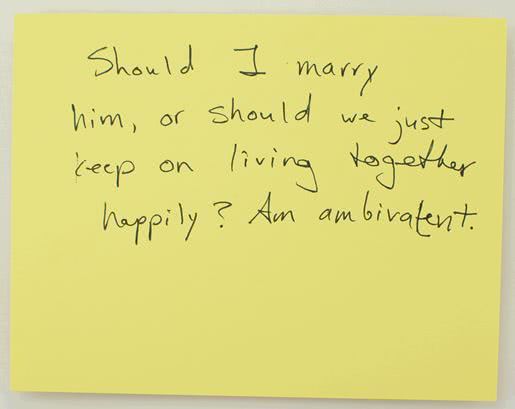 Should I marry
him, or should we just
keep on living together
happily? Am ambivalent.